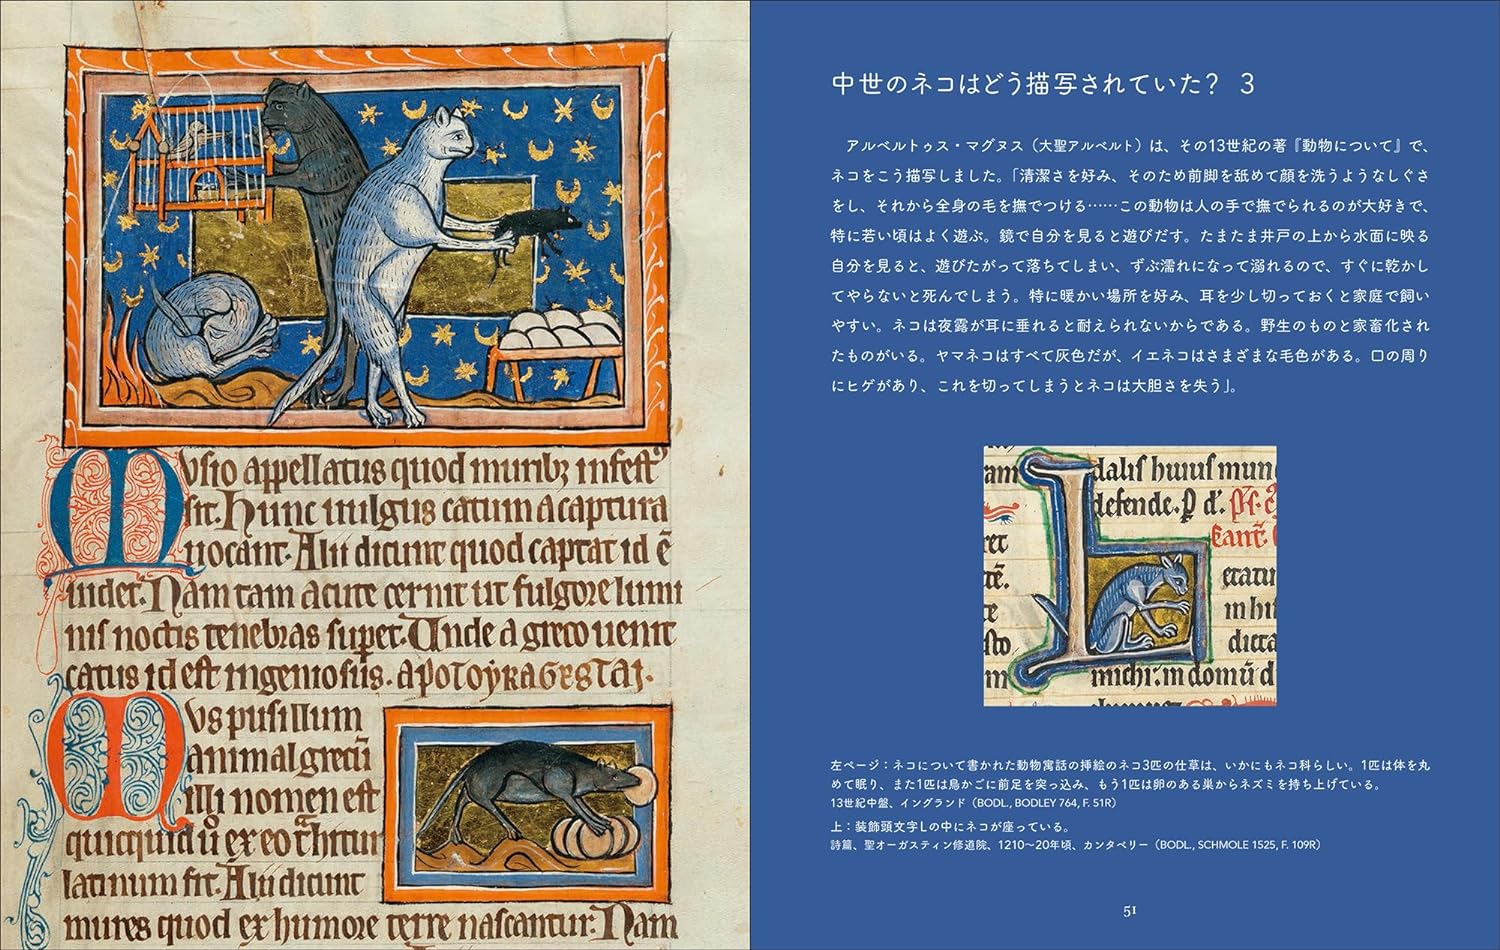 Musio appellatus quod muribꝫ infestꝰ
sit. Hunc uulgus catum a captura
uocant. Alii dicunt quod captat id ē
uidet. Nam tam acute cernit ut fulgore lumi
nis noctis tenebras superet. Unde a greco uenit
catus id est ingeniosus.
Mus pusillum
animal grecū
illi nomen est
quicquid ū ex eo trahitur
latinum fit. Alii dicunt
mures quod ex humore terre nascantur. Nam
中世のネコはどう描写されていた? 3
アルベルトゥス・マグヌス(大聖アルベルト)は、その13世紀の著『動物について』で、
ネコをこう描写しました。「清潔さを好み、そのため前脚を舐めて顔を洗うようなしぐさ
をし、それから全身の毛を撫でつける……この動物は人の手で撫でられるのが大好きで、
特に若い頃はよく遊ぶ。鏡で自分を見ると遊びだす。たまたま井戸の上から水面に映る
自分を見ると、遊びたがって落ちてしまい、ずぶ濡れになって溺れるので、すぐに乾かし
てやらないと死んでしまう。特に暖かい場所を好み、耳を少し切っておくと家庭で飼い
やすい。ネコは夜露が耳に垂れると耐えられないからである。野生のものと家畜化され
たものがいる。ヤマネコはすべて灰色だが、イエネコはさまざまな毛色がある。口の周り
にヒゲがあり、これを切ってしまうとネコは大胆さを失う」。
am L dalis huius mun
defende. p d.
michi. in domū d
左ページ:ネコについて書かれた動物寓話の挿絵のネコ3匹の仕草は、いかにもネコ科らしい。1匹は体を丸
めて眠り、また1匹は鳥かごに前足を突っ込み、もう1匹は卵のある巣からネズミを持ち上げている。
13世紀中盤、イングランド(BODL., BODLEY 764, F. 51R)
上:装飾頭文字Lの中にネコが座っている。
詩篇、聖オーガスティン修道院、1210〜20年頃、カンタベリー(BODL., SCHMOLE 1525, F. 109R)
51